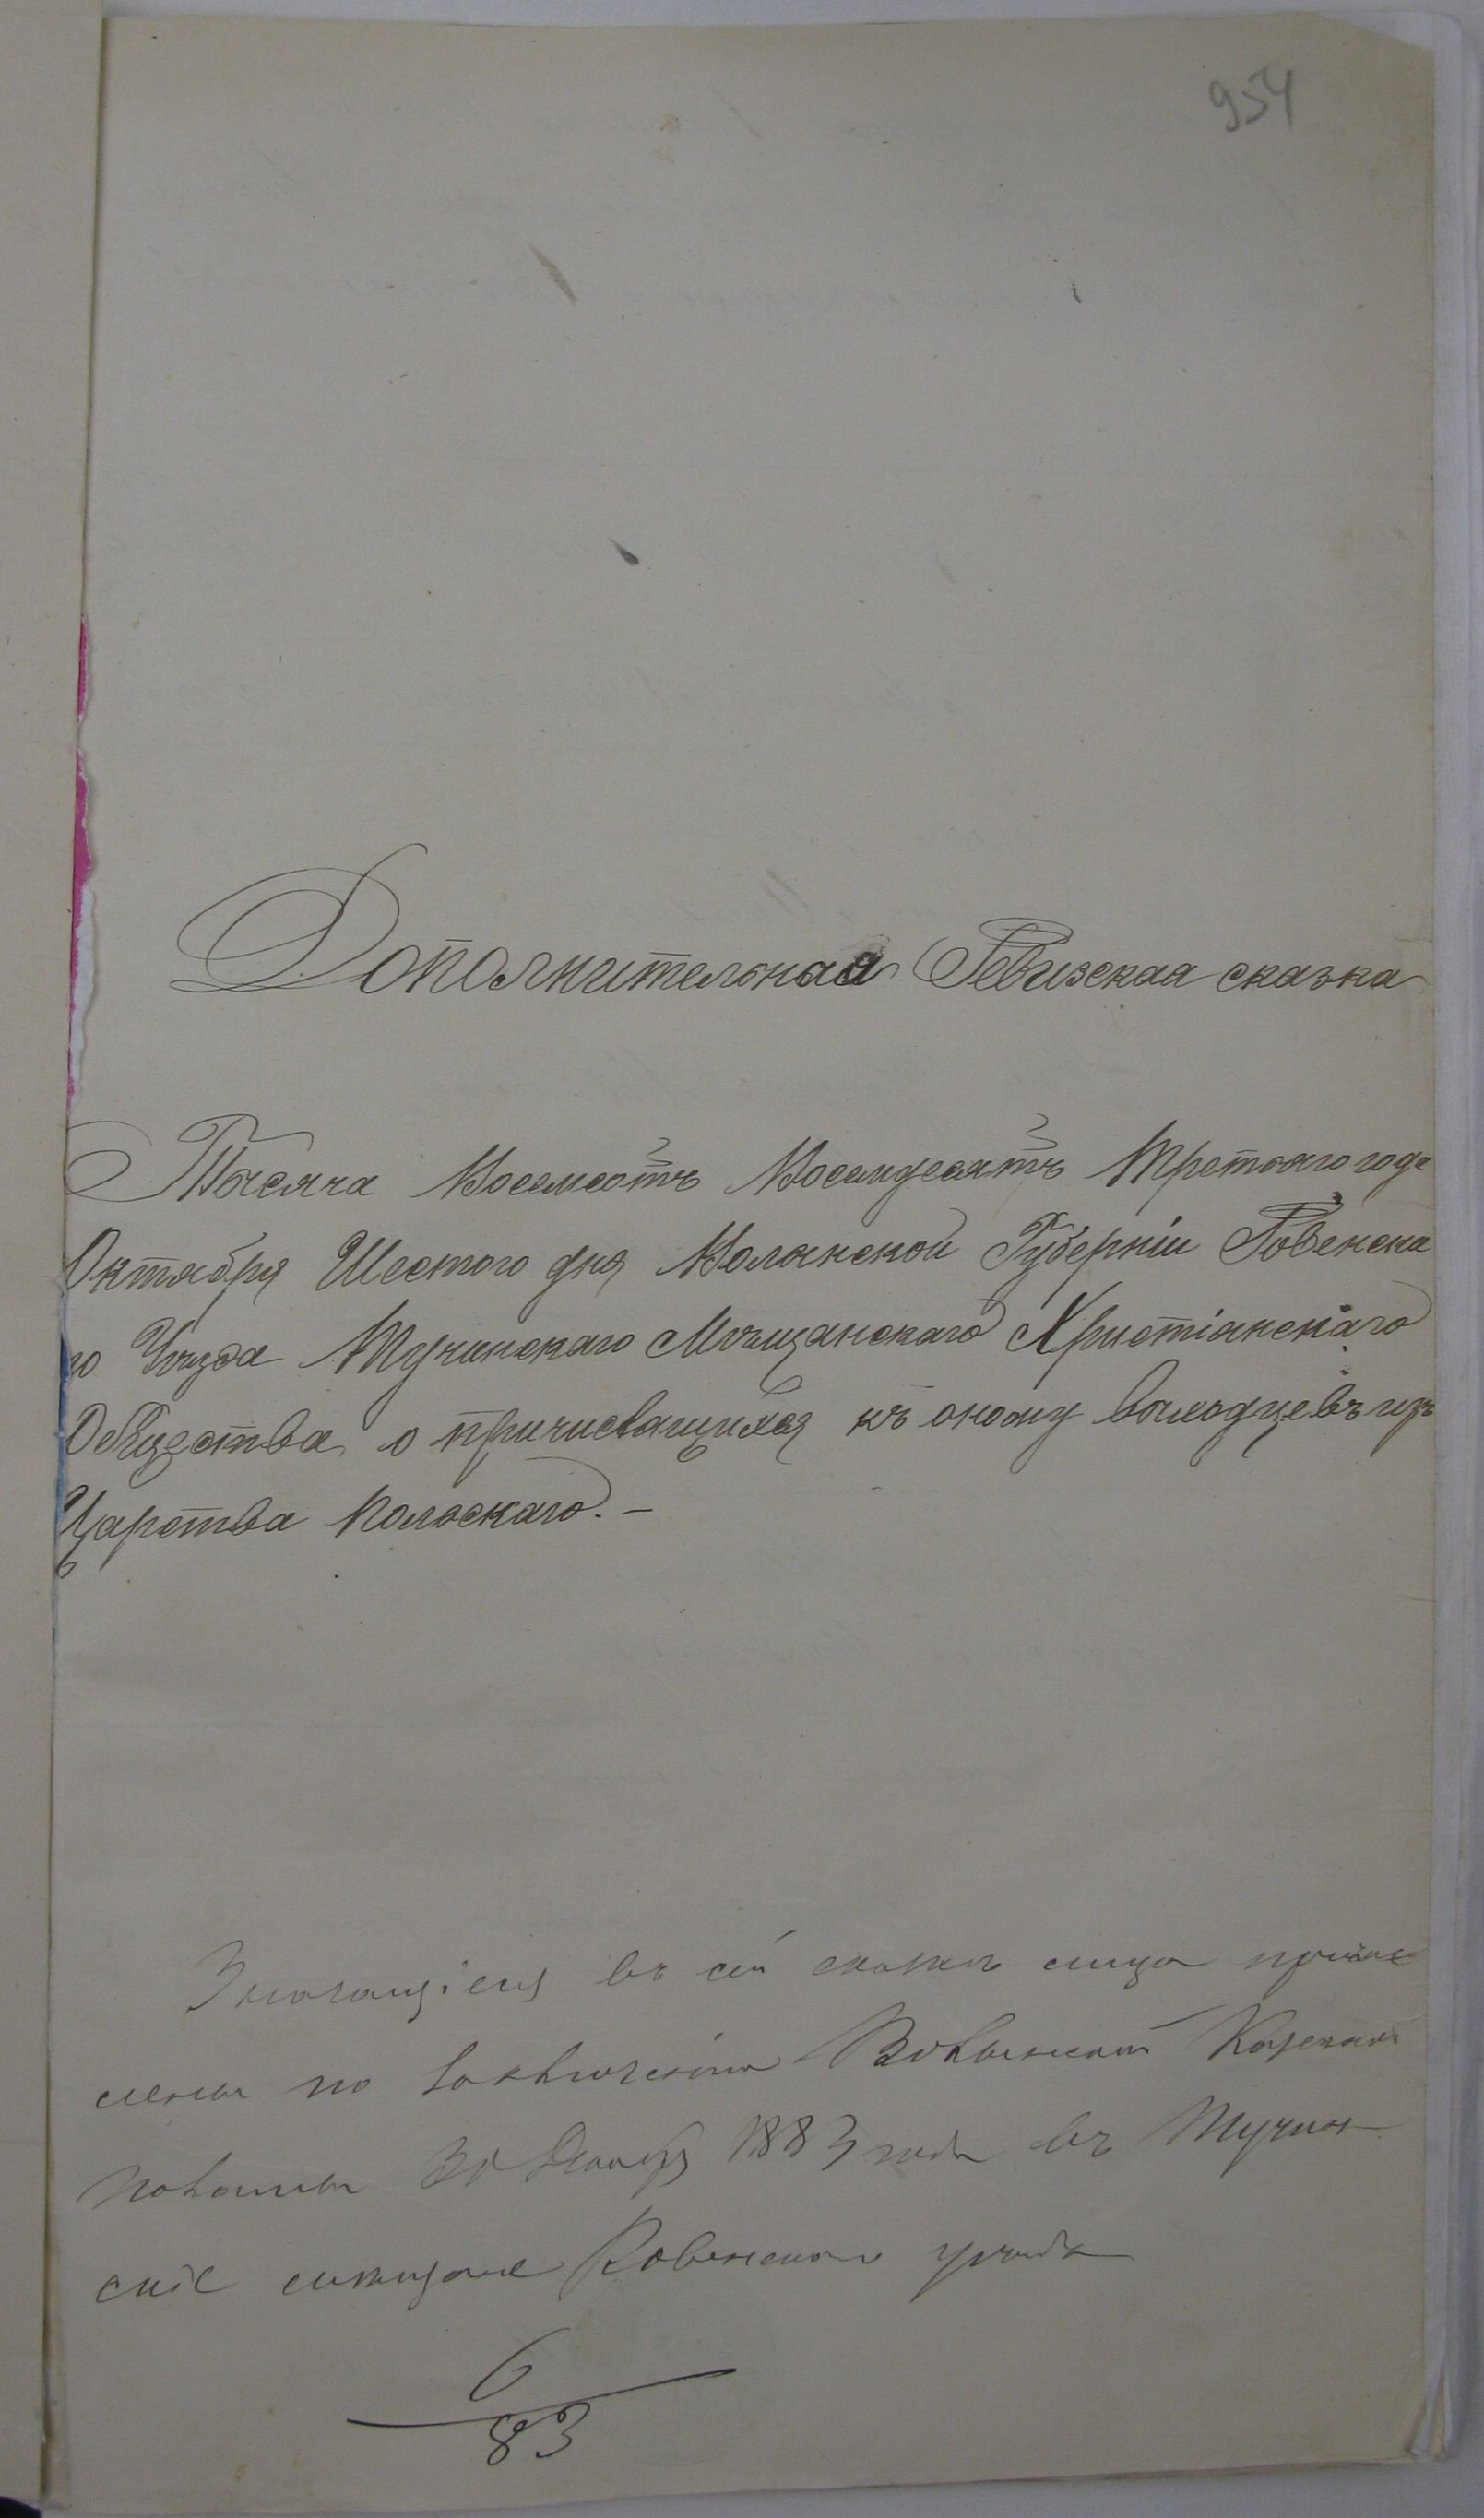 954
Дополнительная Ревизская сказка
Тысяча Восемсотъ Восемдесятъ Третьяго года
Октября Шестого дня Волынской Губерніи Ровенска
го Уѣзда Тучинскаго Мѣщанскаго Христіанскаго
Общества о причисляющихся къ оному выходцевъ изъ
Царства Польскаго. —
Значащіеся въ сей сказкѣ лица причис
лены по заключенію Волынской Казенной
Палаты 30 1883 года въ Тучин
скіе мѣщане Ровенскаго уѣзда
6
83